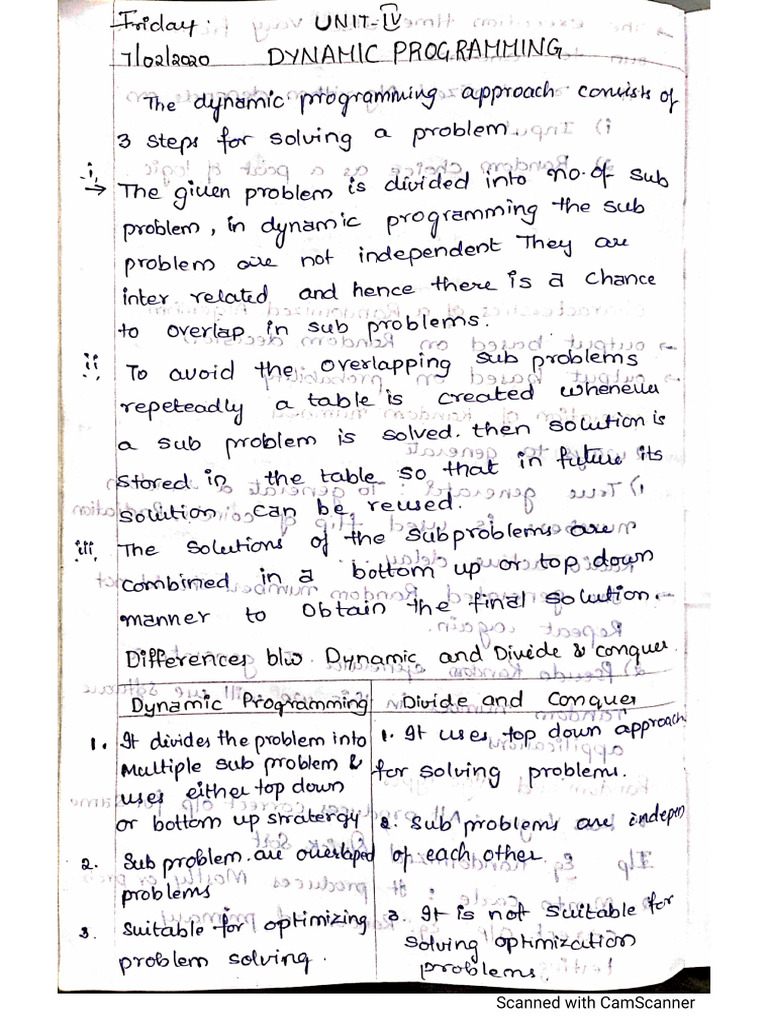 Friday. UNIT-IV
7/02/2020 DYNAMIC PROGRAMMING
The dynamic programming approach consists of
3 steps for solving a problem.
i,
→ The given problem is divided into no. of sub
problem, in dynamic programming the sub
problem are not independent They are
inter related and hence there is a chance
to overlap in sub problems.
ii, To avoid the overlapping sub problems
repeteadly a table is created whenever
a sub problem is solved. then solution is
stored in the table so that in future its
solution can be reused.
iii, The solutions of the subproblems are
combined in a bottom up or top down
manner to obtain the final solution.
Differences b/w. Dynamic and Divide & conquer.
Dynamic Programming
1. It divides the problem into
multiple sub problem &
uses either top down
or bottom up stratergy
2. Sub problem are overlaped
problems
3. Suitable for optimizing
problem solving.
Divide and Conquer
1. It uses top down approach
for solving problems.
2. Sub problems are indepen
of each other.
3. It is not suitable for
solving optimization
problems.
Scanned with CamScanner